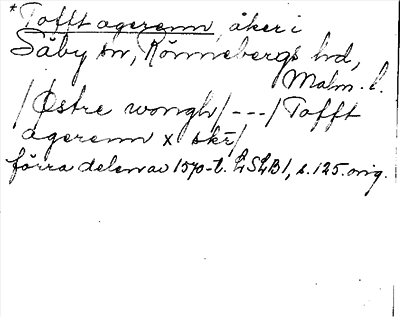 *Tofft agerenn, åker i
Säby sn, Rönnebergs hd,
Malm. l.
/Østre wongh/---/Tofft
agerenn x skr/
förra delen av 1570-t. LSLB1, s. 125. orig.